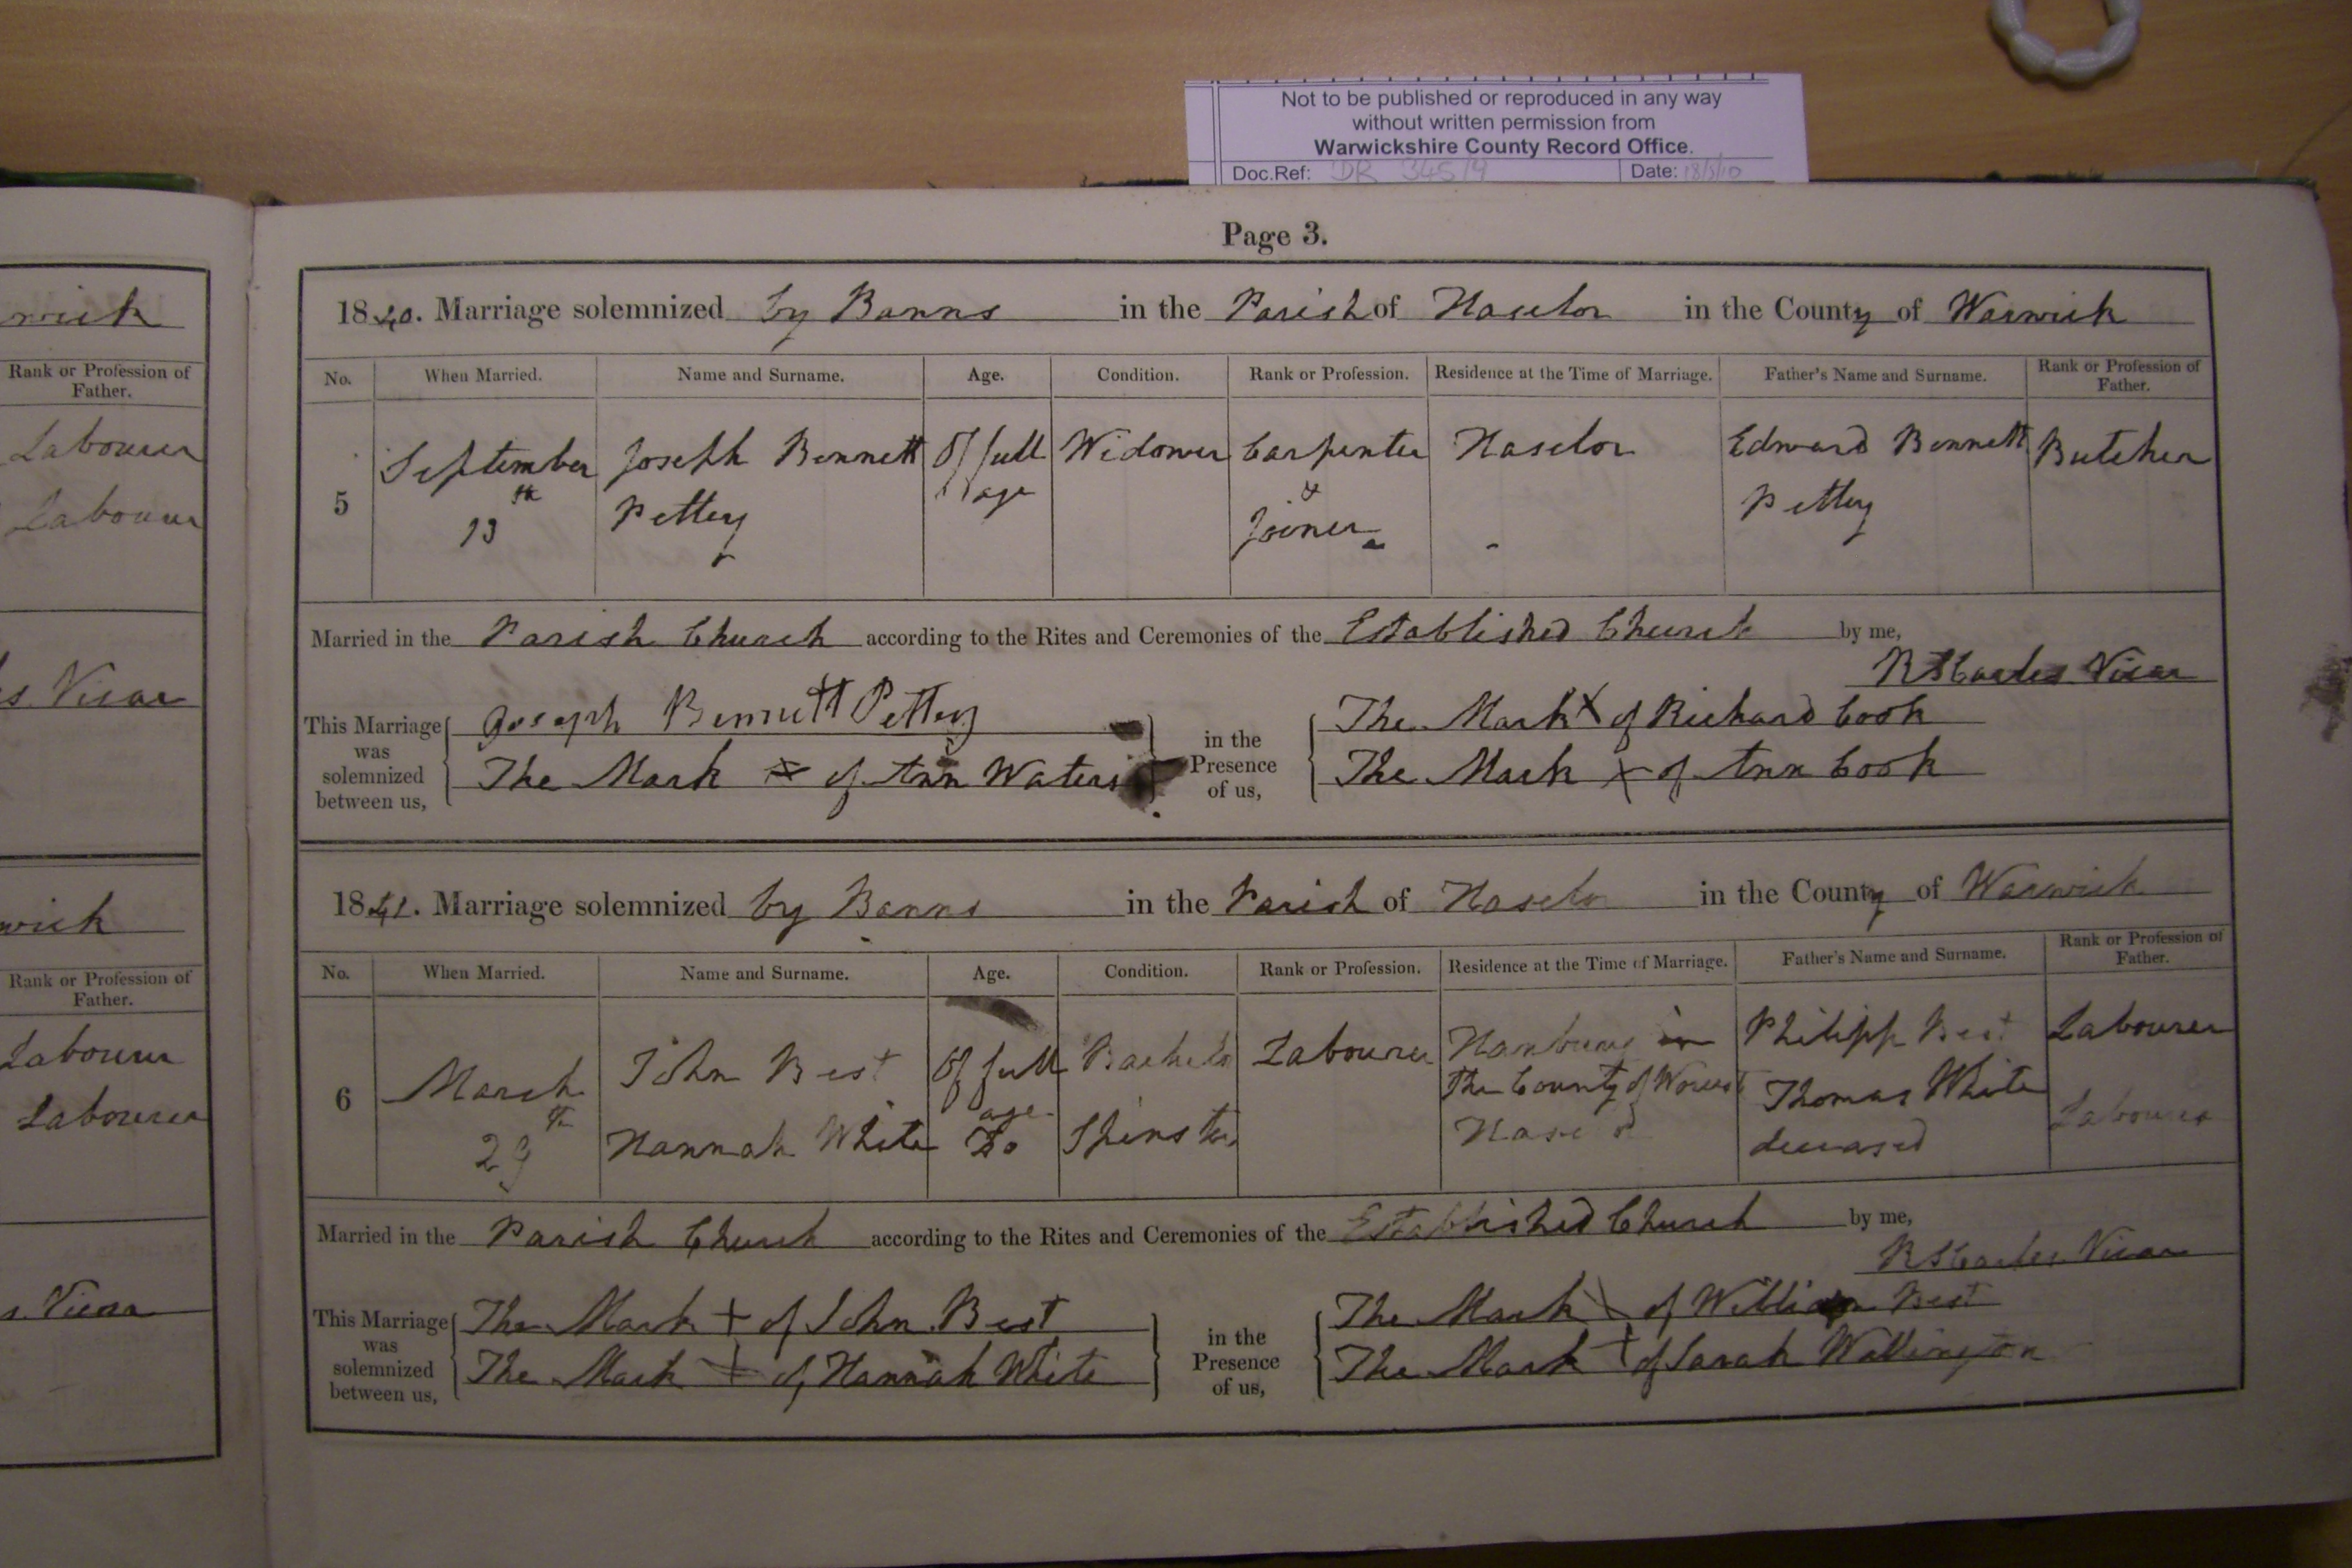 Not to be published or reproduced in any way
without written permission from
Warwickshire County Record Office.
Doc.Ref: DR 345/9 Date: 18/5/10
Page 3.
wick
Rank or Profession of
Father.
Labourer
Labourer
s. Vicar
wick
Rank or Profession of
Father.
Labourer
Labourer
s. Vicar
1840. Marriage solemnized by Banns in the Parish of Haselor in the County of Warwick
No. When Married. Name and Surname. Age. Condition. Rank or Profession. Residence at the Time of Marriage. Father's Name and Surname. Rank or Profession of Father.
5 September Joseph Bennett Of full Widower Carpenter Haselor Edward Bennett Butcher
13th Pettey age & Pettey
Joiner
Married in the Parish Church according to the Rites and Ceremonies of the Established Church by me,
R S Carles Vicar
This Marriage was solemnized between us, Joseph Bennett Pettey in the Presence of us, The Mark X of Richard Cook
The Mark X of Ann Waters The Mark X of Ann Cook
1841. Marriage solemnized by Banns in the Parish of Haselor in the County of Warwick
No. When Married. Name and Surname. Age. Condition. Rank or Profession. Residence at the Time of Marriage. Father's Name and Surname. Rank or Profession of Father.
6 March John Best Of full age Bachelor Labourer Hanbury in Philipp Best Labourer
the County of Worcest
29th Hannah White Do Spinster Haselor Thomas White Labourer
deceased
Married in the Parish Church according to the Rites and Ceremonies of the Established Church by me,
R S Carles Vicar
This Marriage was solemnized between us, The Mark + of John Best in the Presence of us, The Mark X of William Best
The Mark + of Hannah White The Mark + of Sarah Wallington